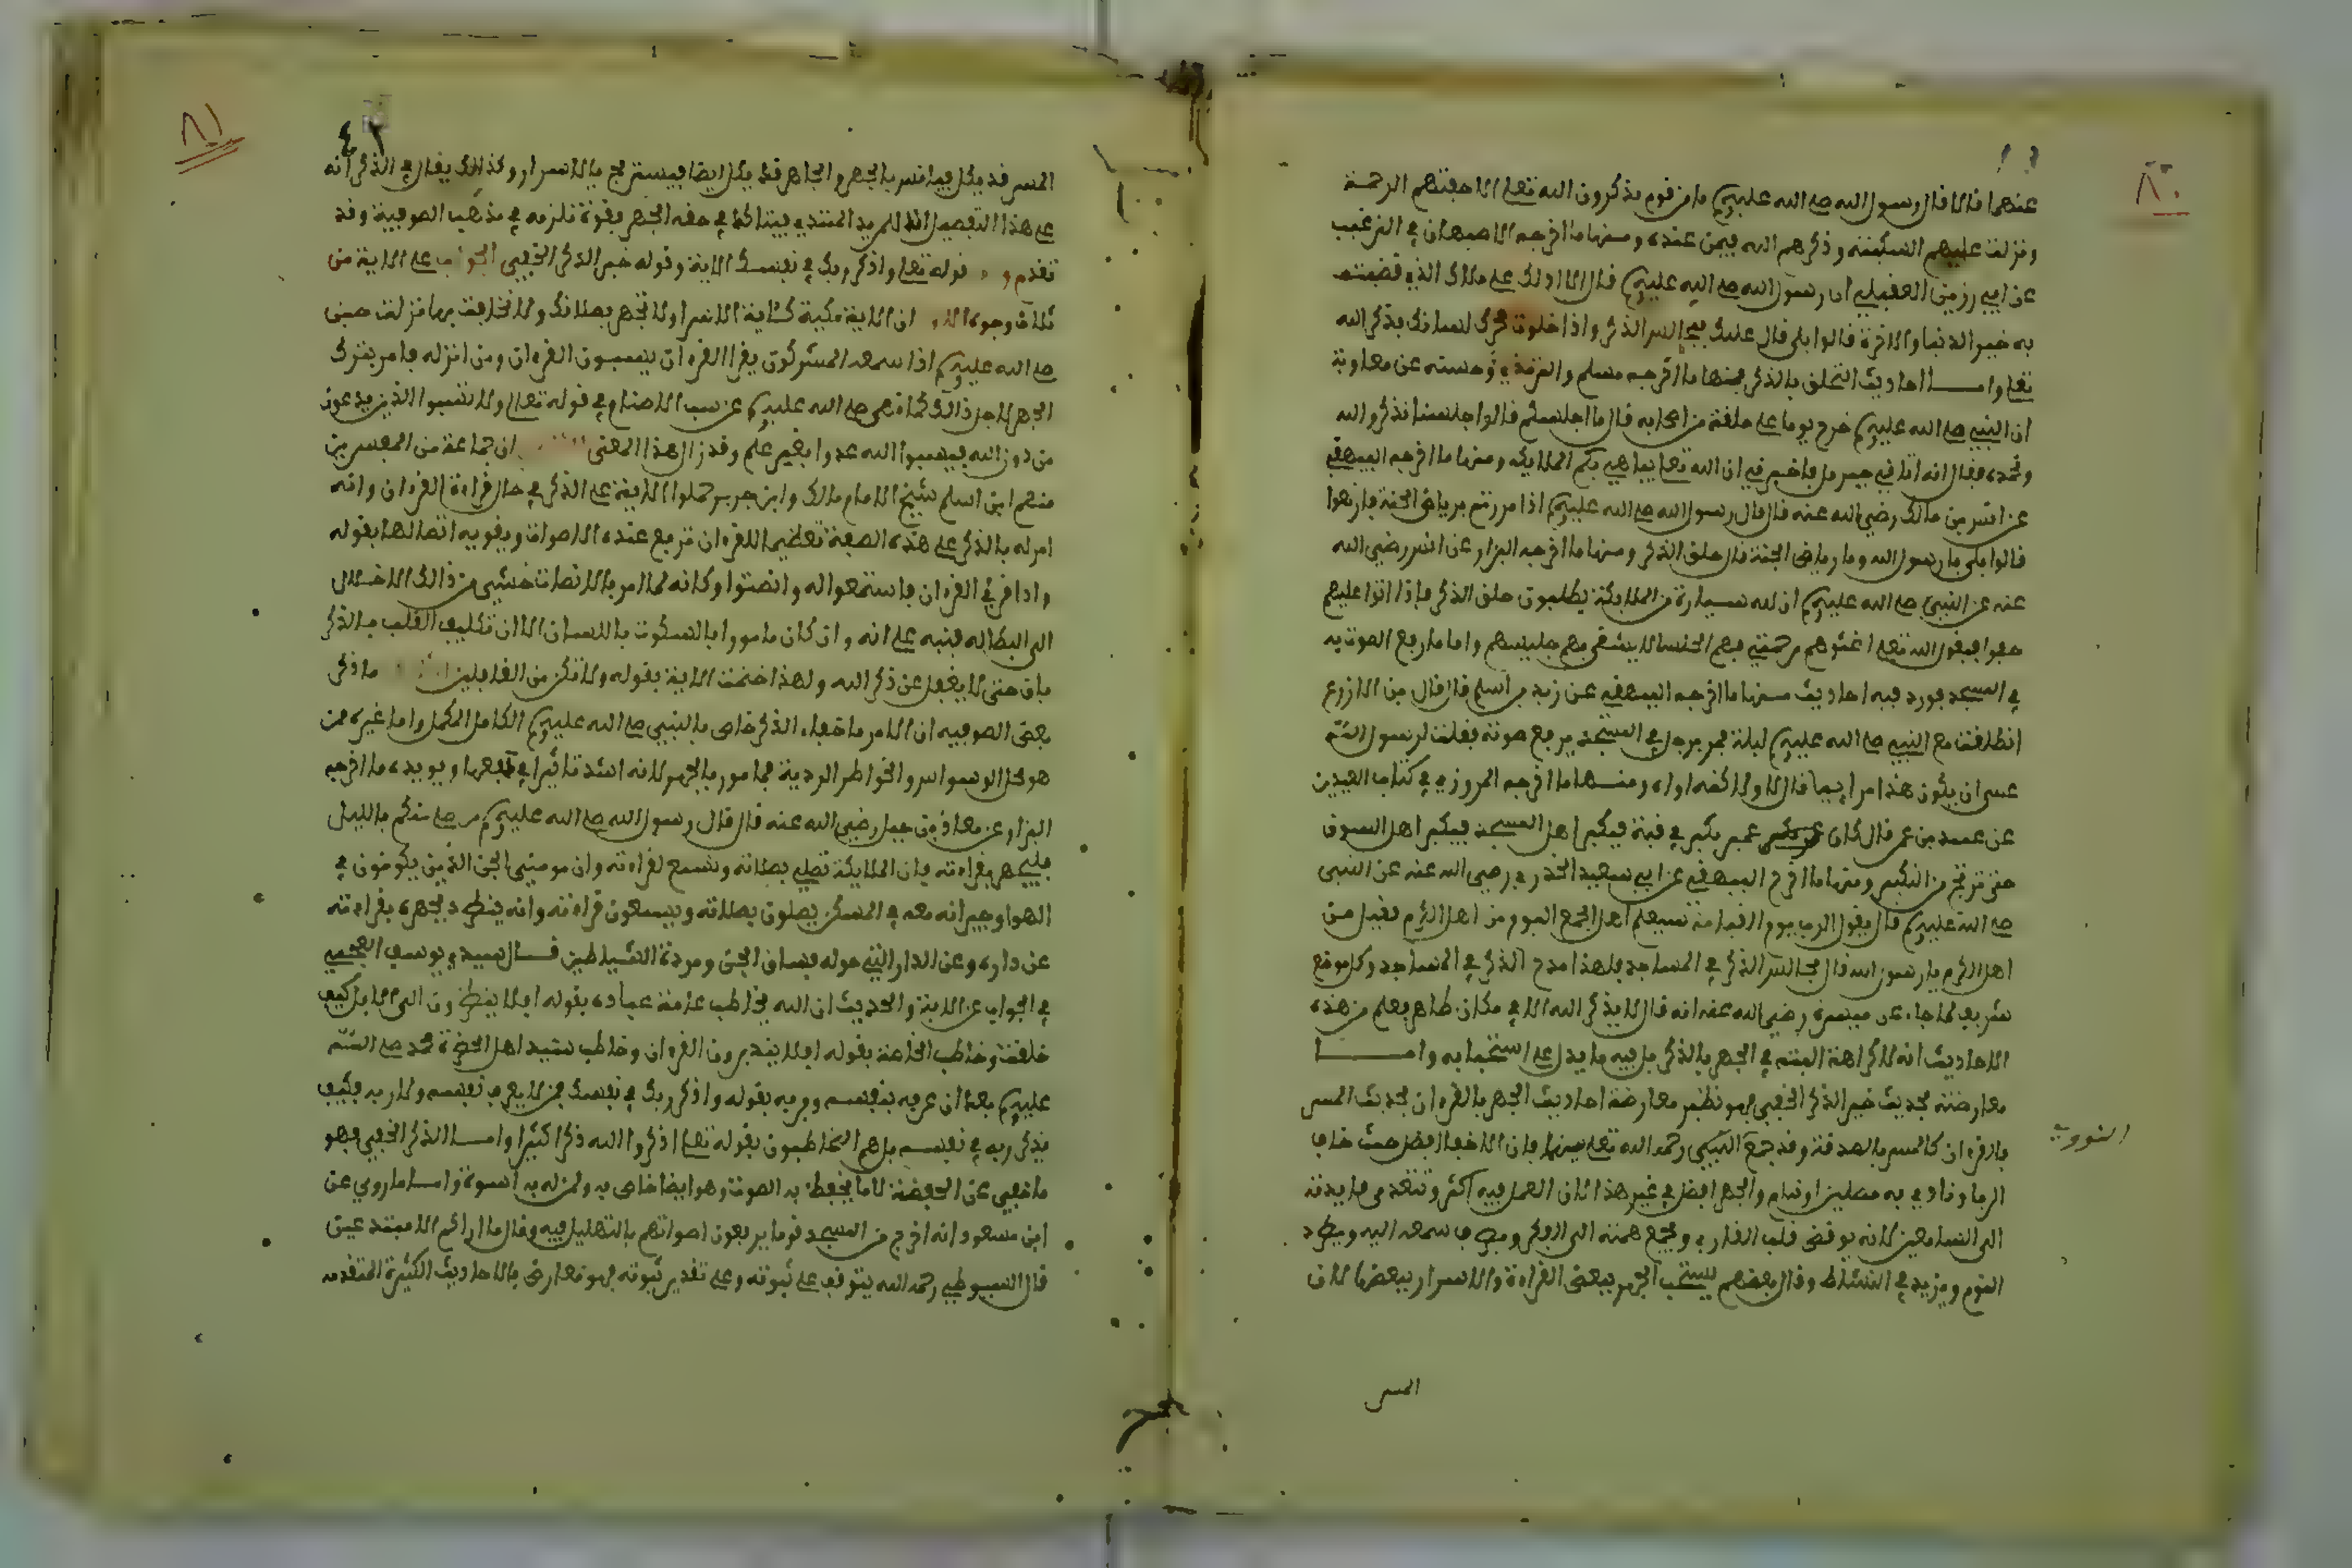 ٨٠
عنهما قالا قال رسول الله صلى الله عليه وسلم ما من قوم يذكرون الله تعلى الا حفتهم الرحمة
ونزلت عليهم السكينة وذكرهم الله فيمن عنده ومنها ما اخرجه الاصبهاني في الترغيب
عن ابي رزين العقيلي ان رسول الله صلى الله عليه وسلم قال الا ادلك على ملاك الذي تصيب
به خير الدنيا والاخرة قالوا بلى قال عليك بمجالس الذكر واذا خلوت فحرك لسانك بذكر الله
تعلى وامــا احاديث التحلق بالذكر فمنها ما اخرجه مسلم والترمذي وحسنه عن معاوية
ان النبي صلى الله عليه وسلم خرج يوما على حلقة من اصحابه فقال ما اجلسكم قالوا جلسنا نذكر الله
ونحمده فقال انه اتاني جبريل فاخبرني ان الله تعلى يباهي بكم الملايكة ومنها ما اخرجه البيهقي
عن انس بن مالك رضي الله عنه قال قال رسول الله صلى الله عليه وسلم اذا مررتم برياض الجنة فارتعوا
قالوا بلى يا رسول الله وما رياض الجنة قال حلق الذكر ومنها ما اخرجه البزار عن انس رضي الله
عنه عن النبي صلى الله عليه وسلم ان لله سيارة من الملايكة يطلبون حلق الذكر فاذا اتوا عليهم
حفوا فيقول الله تعلى اغشوهم برحمتي فهم الجلساء لا يشقى بهم جليسهم واما ما رفع الصوت به
في المسجد فورد فيه احاديث منها ما اخرجه البيهقي عن زيد بن اسلم قال قال بن الازرع
انطلقت مع النبي صلى الله عليه وسلم ليلة فمر برجل في المسجد يرفع صوته فقلت لرسول الله
عسى ان يكون هذا مرايبا قال لا ولاكنه اواه ومنــها ما اخرجه المروزي في كتاب العيدين
عن عبيد بن عمر قال كان عمر يكبر في قبته فيكبر اهل المسجد فيكبر اهل السوق
حتى ترتج من التكبير ومنها ما اخرج البيهقي عن ابي سعيد الخدري رضي الله عنه عن النبي
صلى الله عليه وسلم قال يقول الرب يوم القيامة سيعلم اهل الجمع اليوم من اهل الكرم فقيل من
اهل الكرم يا رسول الله قال مجالس الذكر في المساجد فلهذا مدح الذكر في المساجد وكل موضع
شريف كما جاء عن ميسرة رضي الله عنه انه قال لا يذكر الله الا في مكان طاهر يعلم من هذه
الاحاديث انه لا كراهة البتة في الجهر بالذكر بل فيه ما يدل على استحبابه وامــــا
معارضته بحديث خير الذكر الخفي فهو نظير معارضة احاديث الجهر بالقرءان بحديث المسر
بالقرءان كالمسر بالصدقة وقد جمع النووي رحمه الله تعلى بينهما بان الاخفا افضل حيث خاف
الريا وتاذي به مصلين او نيام والجهر افضل في غير هذا لان العمل فيه اكثر وتتعدى فايدته
الى السامعين لانه يوقض قلب القاري ويجمع همته الى الفكر ويصرف سمعه اليه ويطرد
النوم ويزيد في النشاط وقال بعضهم يستحب الجهر ببعض القراءة والاسرار ببعضها لان
المسر
٨١
المسر قد يمل فيانس بالجهر والجاهر قد يكل ايضا فيستريح بالاسرار وكذلك يقال في الذكر انه
على هذا التفصيل الا للمريد المبتدي فيتاكد في حقه الجهر بقوة تلزمه في مذهب الصوفية وقد
تقدم قوله تعلى واذكر ربك في نفسك الاية وقوله خير الذكر الخفي الجواب على الاية من
ثلاث وجوه الاول ان الاية مكية كاية الاسرا ولا تجهر بصلاتك ولا تخافت بها نزلت حين
صلى الله عليه وسلم اذا سمعه المشركون يقرا القرءان يسبون القرءان ومن انزله فامر بترك
الجهر لاجل ذالك كما نهى صلى الله عليه وسلم عن سب الاصنام في قوله تعلى ولا تسبوا الذين يدعون
من دون الله فيسبوا الله عدوا بغير علم وقد زال هذا المعنى الثاني ان جماعة من المفسرين
منهم ابن اسلم شيخ الامام مالك وابن جرير حملوا الاية على الذكر في حال قراءة القرءان وانه
امر له بالذكر على هذه الصفة تعظيما للقرءان ترفع عنده الاصوات ويقويه اتصالها بقوله
واذا قرئ القرءان فاستمعوا له وانصتوا وكانه لما امر بالانصات خشي من ذالك الاخلال
الى البطالة فنبه على انه وان كان مامورا بالسكوت باللسان الا ان تكليف القلب بالذكر
باق حتى لا يغفل عن ذكر الله ولهذا ختمت الاية بقوله ولا تكن من الغافلين الثالث ما ذكر
بعض الصوفية ان الامر باخفاء الذكر خاص بالنبي صلى الله عليه وسلم الكامل المكمل واما غيره ممن
هو محل الوسواس والخواطر الردية فمامور بالجهر لانه اشد تاثيرا في دفعها ويويده ما اخرجه
البزار عن معاذ بن جبل رضي الله عنه قال قال رسول الله صلى الله عليه وسلم من صلى منكم بالليل
فليجهر بقراءته فان الملايكة تصلي بصلاته وتسمع لقراءته وان مومني الجن الذين يكونون في
الهوا وجيرانه معه في المسكن يصلون بصلاته ويسمعون قراءته وانه ينطرد بجهره بقراءته
عن داره وعن الدار التي حوله فساق الجن ومردة الشياطين قــال سيدي يوسف العجمي
في الجواب عن الاية والحديث ان الله يخاطب عامة عباده بقوله افلا ينظرون الى الابل كيف
خلقت وخاطب الخاصة بقوله افلا يتدبرون القرءان وخاطب سيد اهل الحضرة محمد صلى الله
عليه وسلم بعد ان عرفه بنفسه وربه بقوله واذكر ربك في نفسك فمن لا يعرف نفسه ولا ربه فكيف
يذكر ربه في نفسه بل هم المخاطبون بقوله تعلى اذكروا الله ذكرا كثيرا وامــا الذكر الخفي فهو
ما خفي عن الحفظة لا ما يخفظ به الصوت وهو ايضا خاص به ولمن له به اسوة وامــا ما روي عن
ابن مسعود انه اخرج من المسجد قوما يرفعون اصواتهم بالتهليل فيه وقال ما اراكم الا مبتدعين
قال السيوطي رحمه الله يتوقف على ثبوته وعلى تقدير ثبوته فهو معارض بالاحاديث الكثيرة المتقدمة
النووي